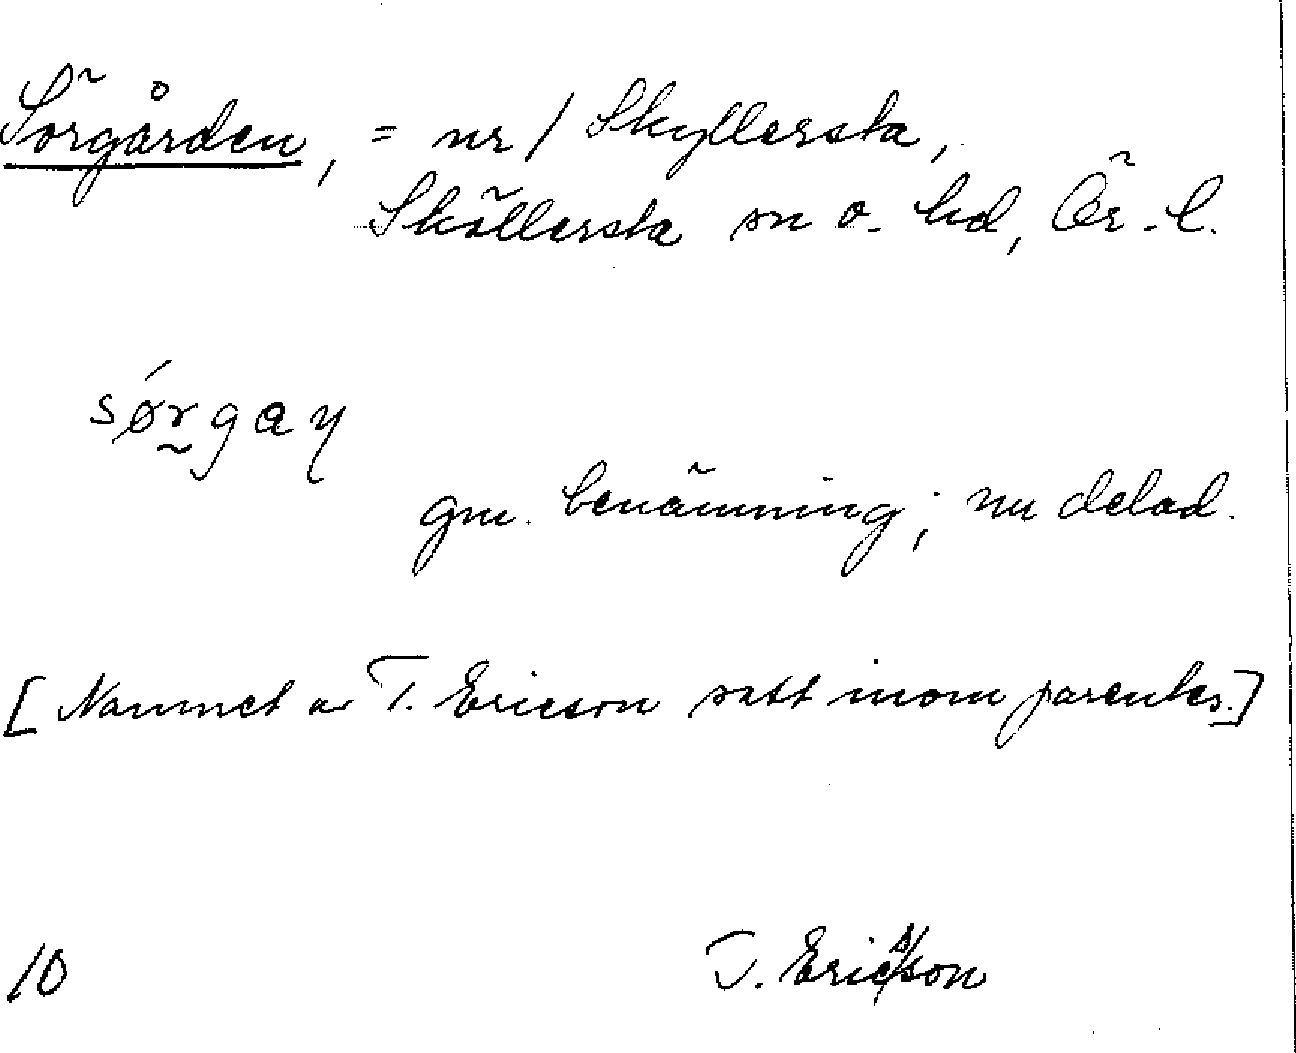 Sörgården, = nr 1 Skyllersta,
Sköllersta sn o. hd, Ör. l.
sǿrgaɳ
gm. benämning; nu delad.
[Namnet av T. Ericson satt inom parentes.]
10
T. Ericson